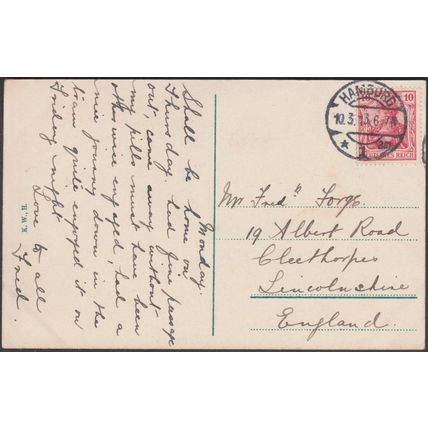 Monday.
Shall be home on
Thursday. had fine passage
out, came away without
my pills must have been
otherwise engaged, had a
nice journey down in the
train quite enjoyed it on
Friday night
Love to all
Fred
E.W.H.
HAMBURG
10.3.13.6-7N
*1
10
DEUTSCHES REICH
Mr Fredk
19 Albert Road
Cleethorpes
Lincolnshire
England.